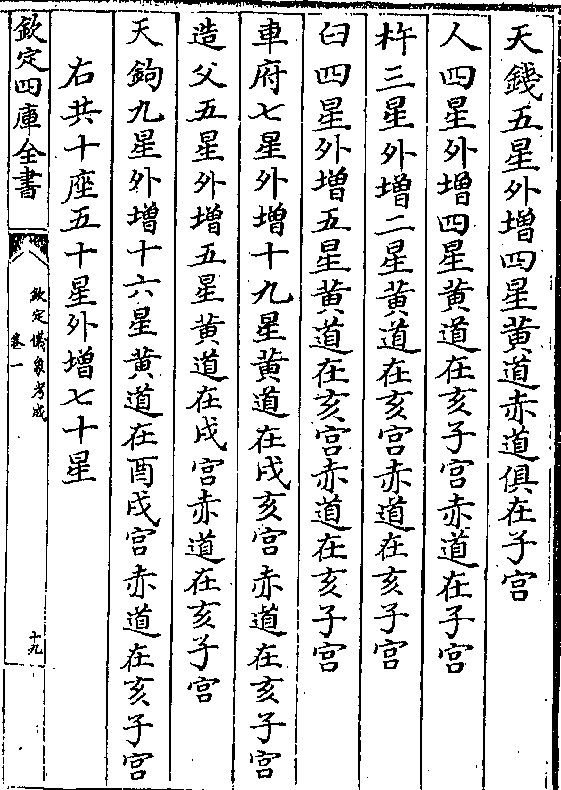 天錢五星外增四星黄道赤道俱在子宫
人四星外增四星黄道在亥子宫赤道在子宫
杵三星外增二星黄道在亥宫赤道在亥子宫
臼四星外增五星黄道在亥宫赤道在亥子宫
車府七星外增十九星黄道在戌亥宫赤道在亥子宫
造父五星外增五星黄道在戌宫赤道在亥子宫
天鉤九星外增十六星黄道在酉戌宫赤道在亥子宫
右共十座五十星外增七十星
欽定四庫全書
欽定儀象考成
卷一
十九